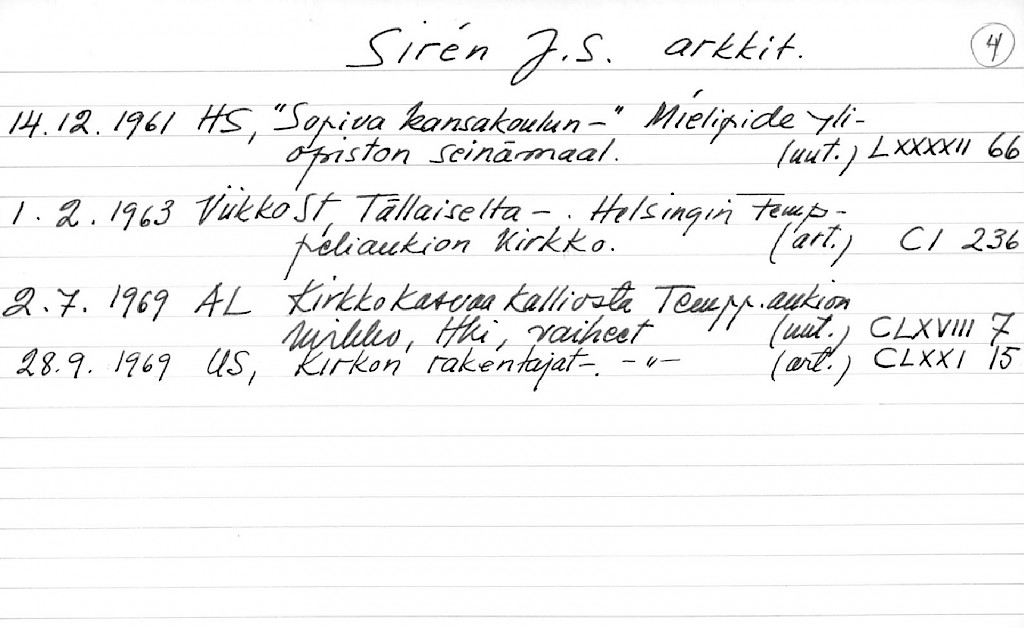 Sirén J.S. arkkit. 4
14.12.1961 HS, "Sopiva kansakoulun-" Mielipide yli-
opiston seinämaal. (uut.) LXXXXII 66
1.2.1963 ViikkoSt, Tällaiselta-. Helsingin Temp-
peliaukion Kirkko. (art.) CI 236
2.7.1969 AL Kirkko kasvaa kalliosta Tempp.aukion
kirkko, Hki, vaiheet (uut.) CLXVIII 7
28.9.1969 US, Kirkon rakentajat-. -"- (art.) CLXXI 15